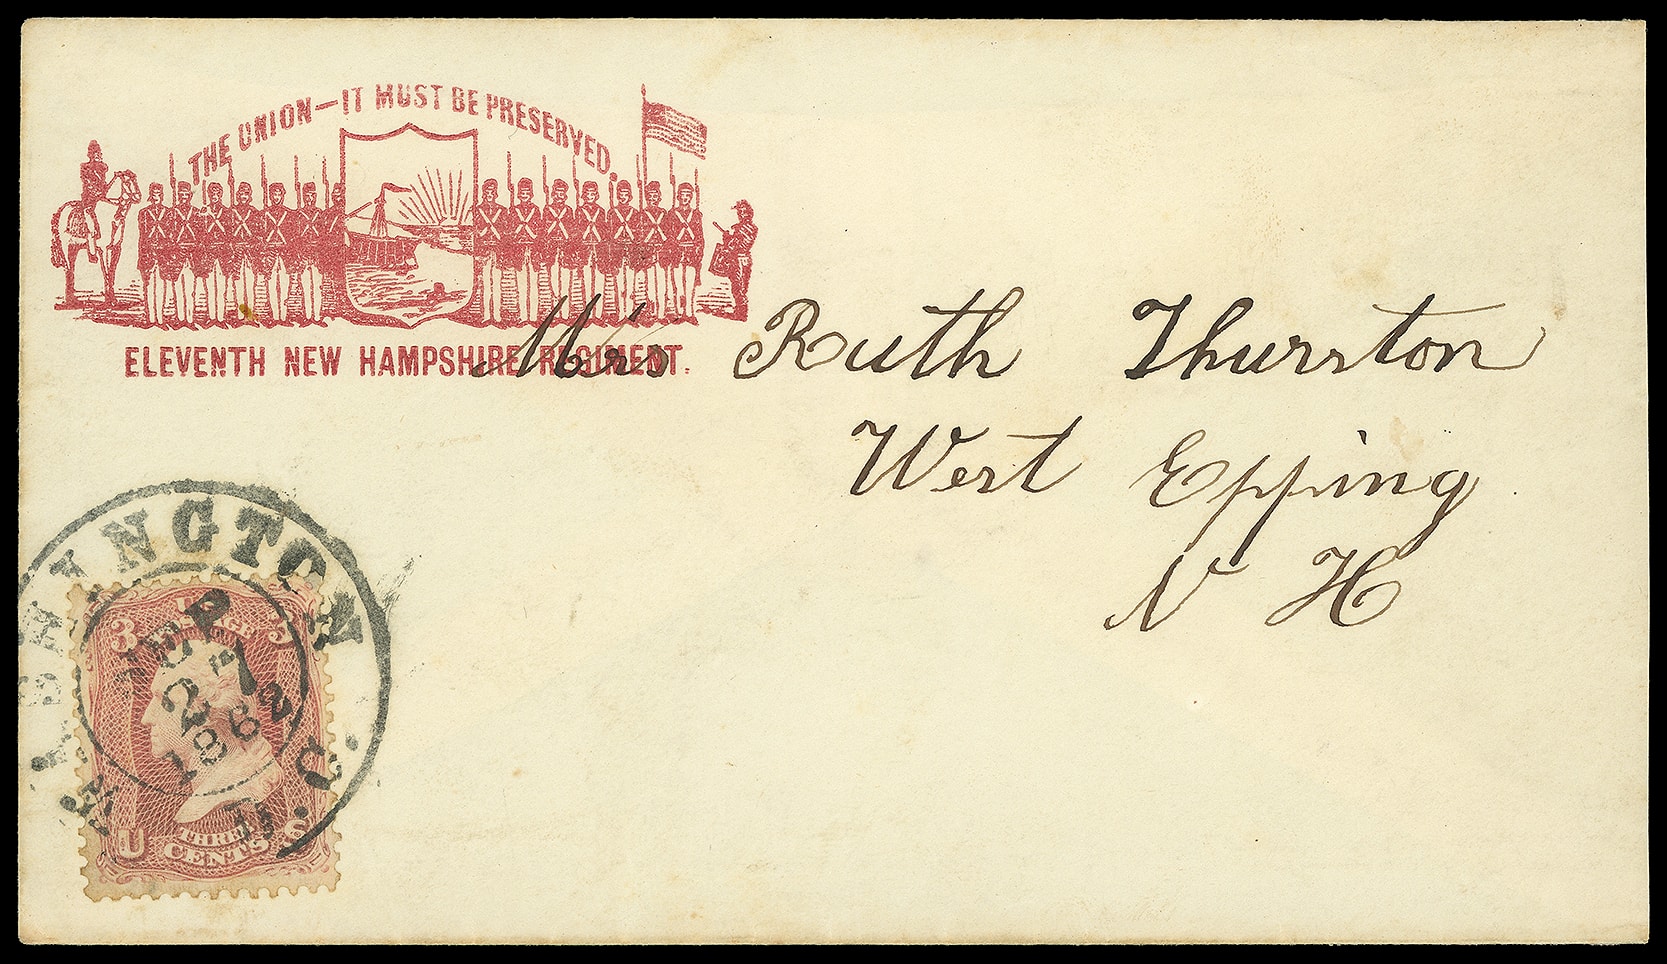 THE UNION—IT MUST BE PRESERVED.
ELEVENTH NEW HAMPSHIRE REGIMENT.
Mrs Ruth Thurston
West Epping
N H
WASHINGTON D.C.
SEP
27
1862
3 3
U.S. POSTAGE
U S
THREE
CENTS